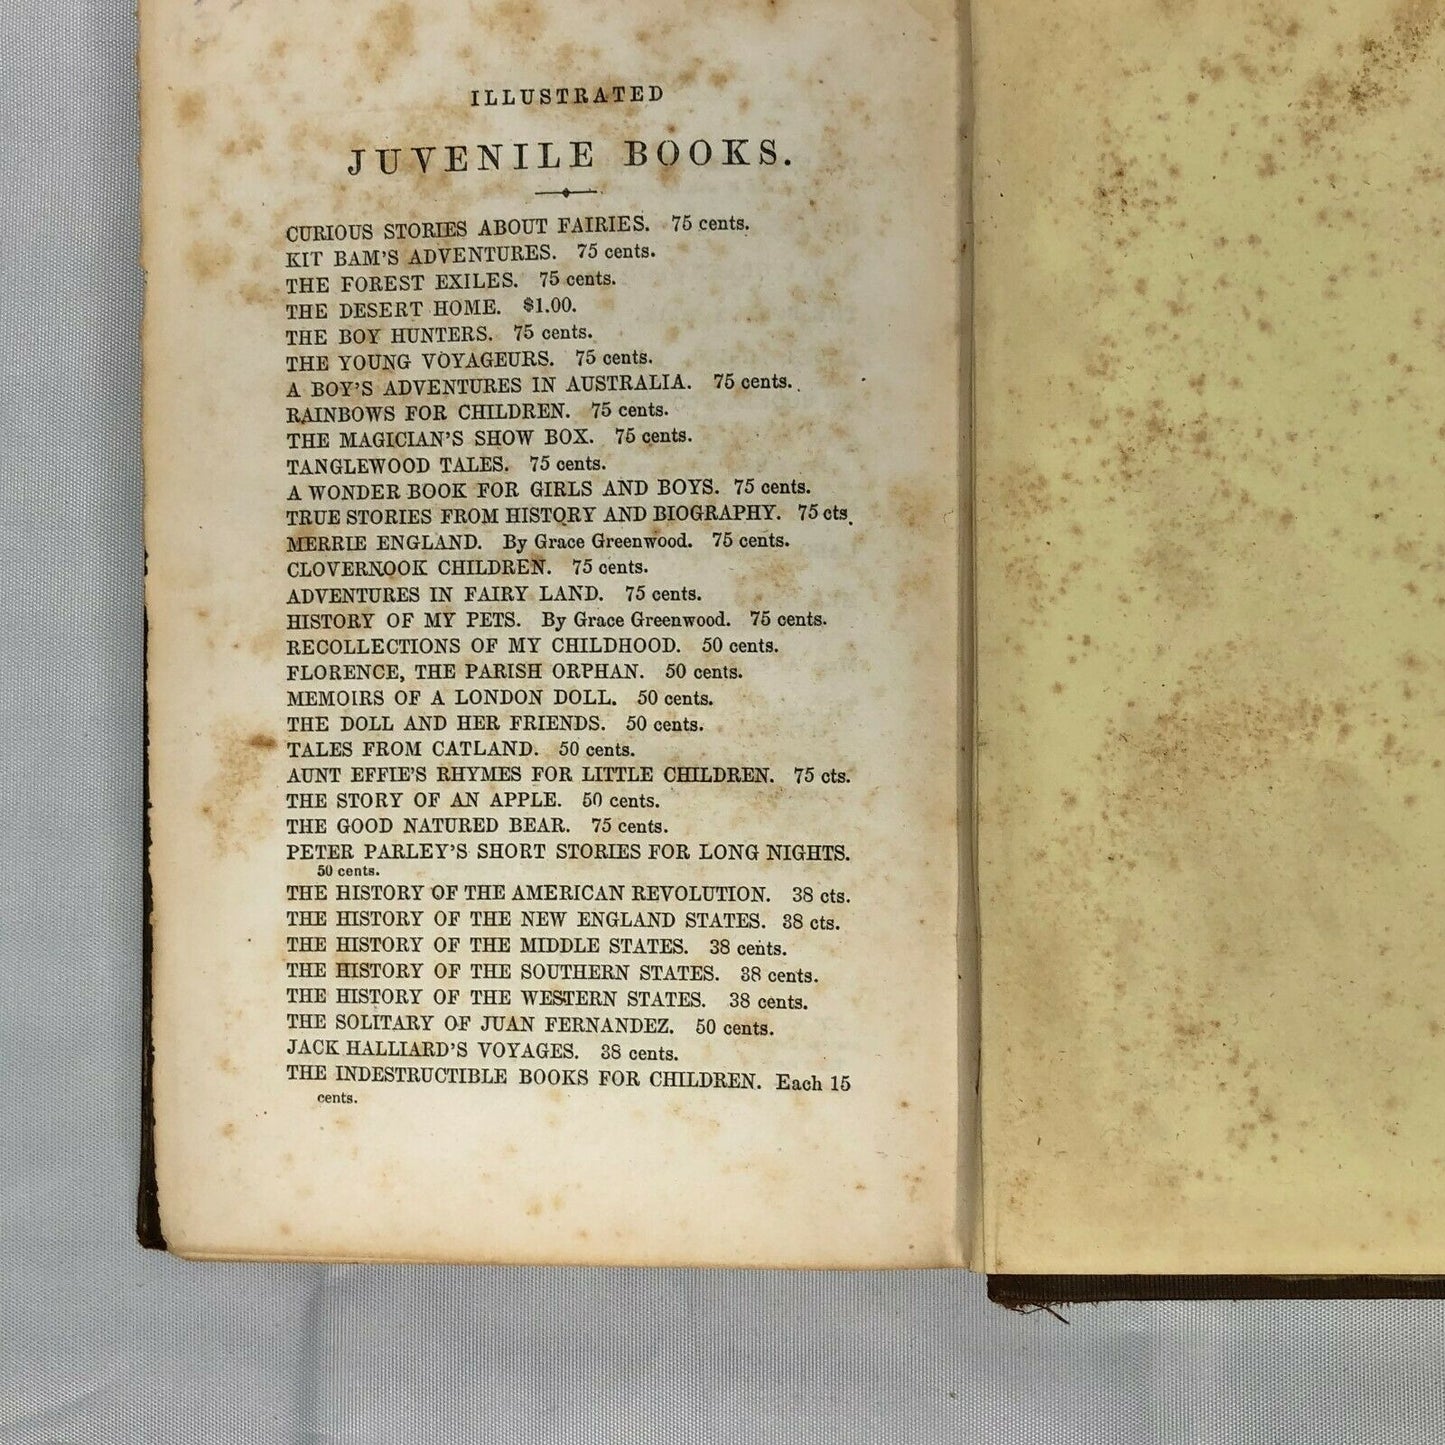 ILLUSTRATED
JUVENILE BOOKS.
CURIOUS STORIES ABOUT FAIRIES. 75 cents.
KIT BAM'S ADVENTURES. 75 cents.
THE FOREST EXILES. 75 cents.
THE DESERT HOME. $1.00.
THE BOY HUNTERS. 75 cents.
THE YOUNG VOYAGEURS. 75 cents.
A BOY'S ADVENTURES IN AUSTRALIA. 75 cents.
RAINBOWS FOR CHILDREN. 75 cents.
THE MAGICIAN'S SHOW BOX. 75 cents.
TANGLEWOOD TALES. 75 cents.
A WONDER BOOK FOR GIRLS AND BOYS. 75 cents.
TRUE STORIES FROM HISTORY AND BIOGRAPHY. 75 cts.
MERRIE ENGLAND. By Grace Greenwood. 75 cents.
CLOVERNOOK CHILDREN. 75 cents.
ADVENTURES IN FAIRY LAND. 75 cents.
HISTORY OF MY PETS. By Grace Greenwood. 75 cents.
RECOLLECTIONS OF MY CHILDHOOD. 50 cents.
FLORENCE, THE PARISH ORPHAN. 50 cents.
MEMOIRS OF A LONDON DOLL. 50 cents.
THE DOLL AND HER FRIENDS. 50 cents.
TALES FROM CATLAND. 50 cents.
AUNT EFFIE'S RHYMES FOR LITTLE CHILDREN. 75 cts.
THE STORY OF AN APPLE. 50 cents.
THE GOOD NATURED BEAR. 75 cents.
PETER PARLEY'S SHORT STORIES FOR LONG NIGHTS.
50 cents.
THE HISTORY OF THE AMERICAN REVOLUTION. 38 cts.
THE HISTORY OF THE NEW ENGLAND STATES. 38 cts.
THE HISTORY OF THE MIDDLE STATES. 38 cents.
THE HISTORY OF THE SOUTHERN STATES. 38 cents.
THE HISTORY OF THE WESTERN STATES. 38 cents.
THE SOLITARY OF JUAN FERNANDEZ. 50 cents.
JACK HALLIARD'S VOYAGES. 38 cents.
THE INDESTRUCTIBLE BOOKS FOR CHILDREN. Each 15
cents.